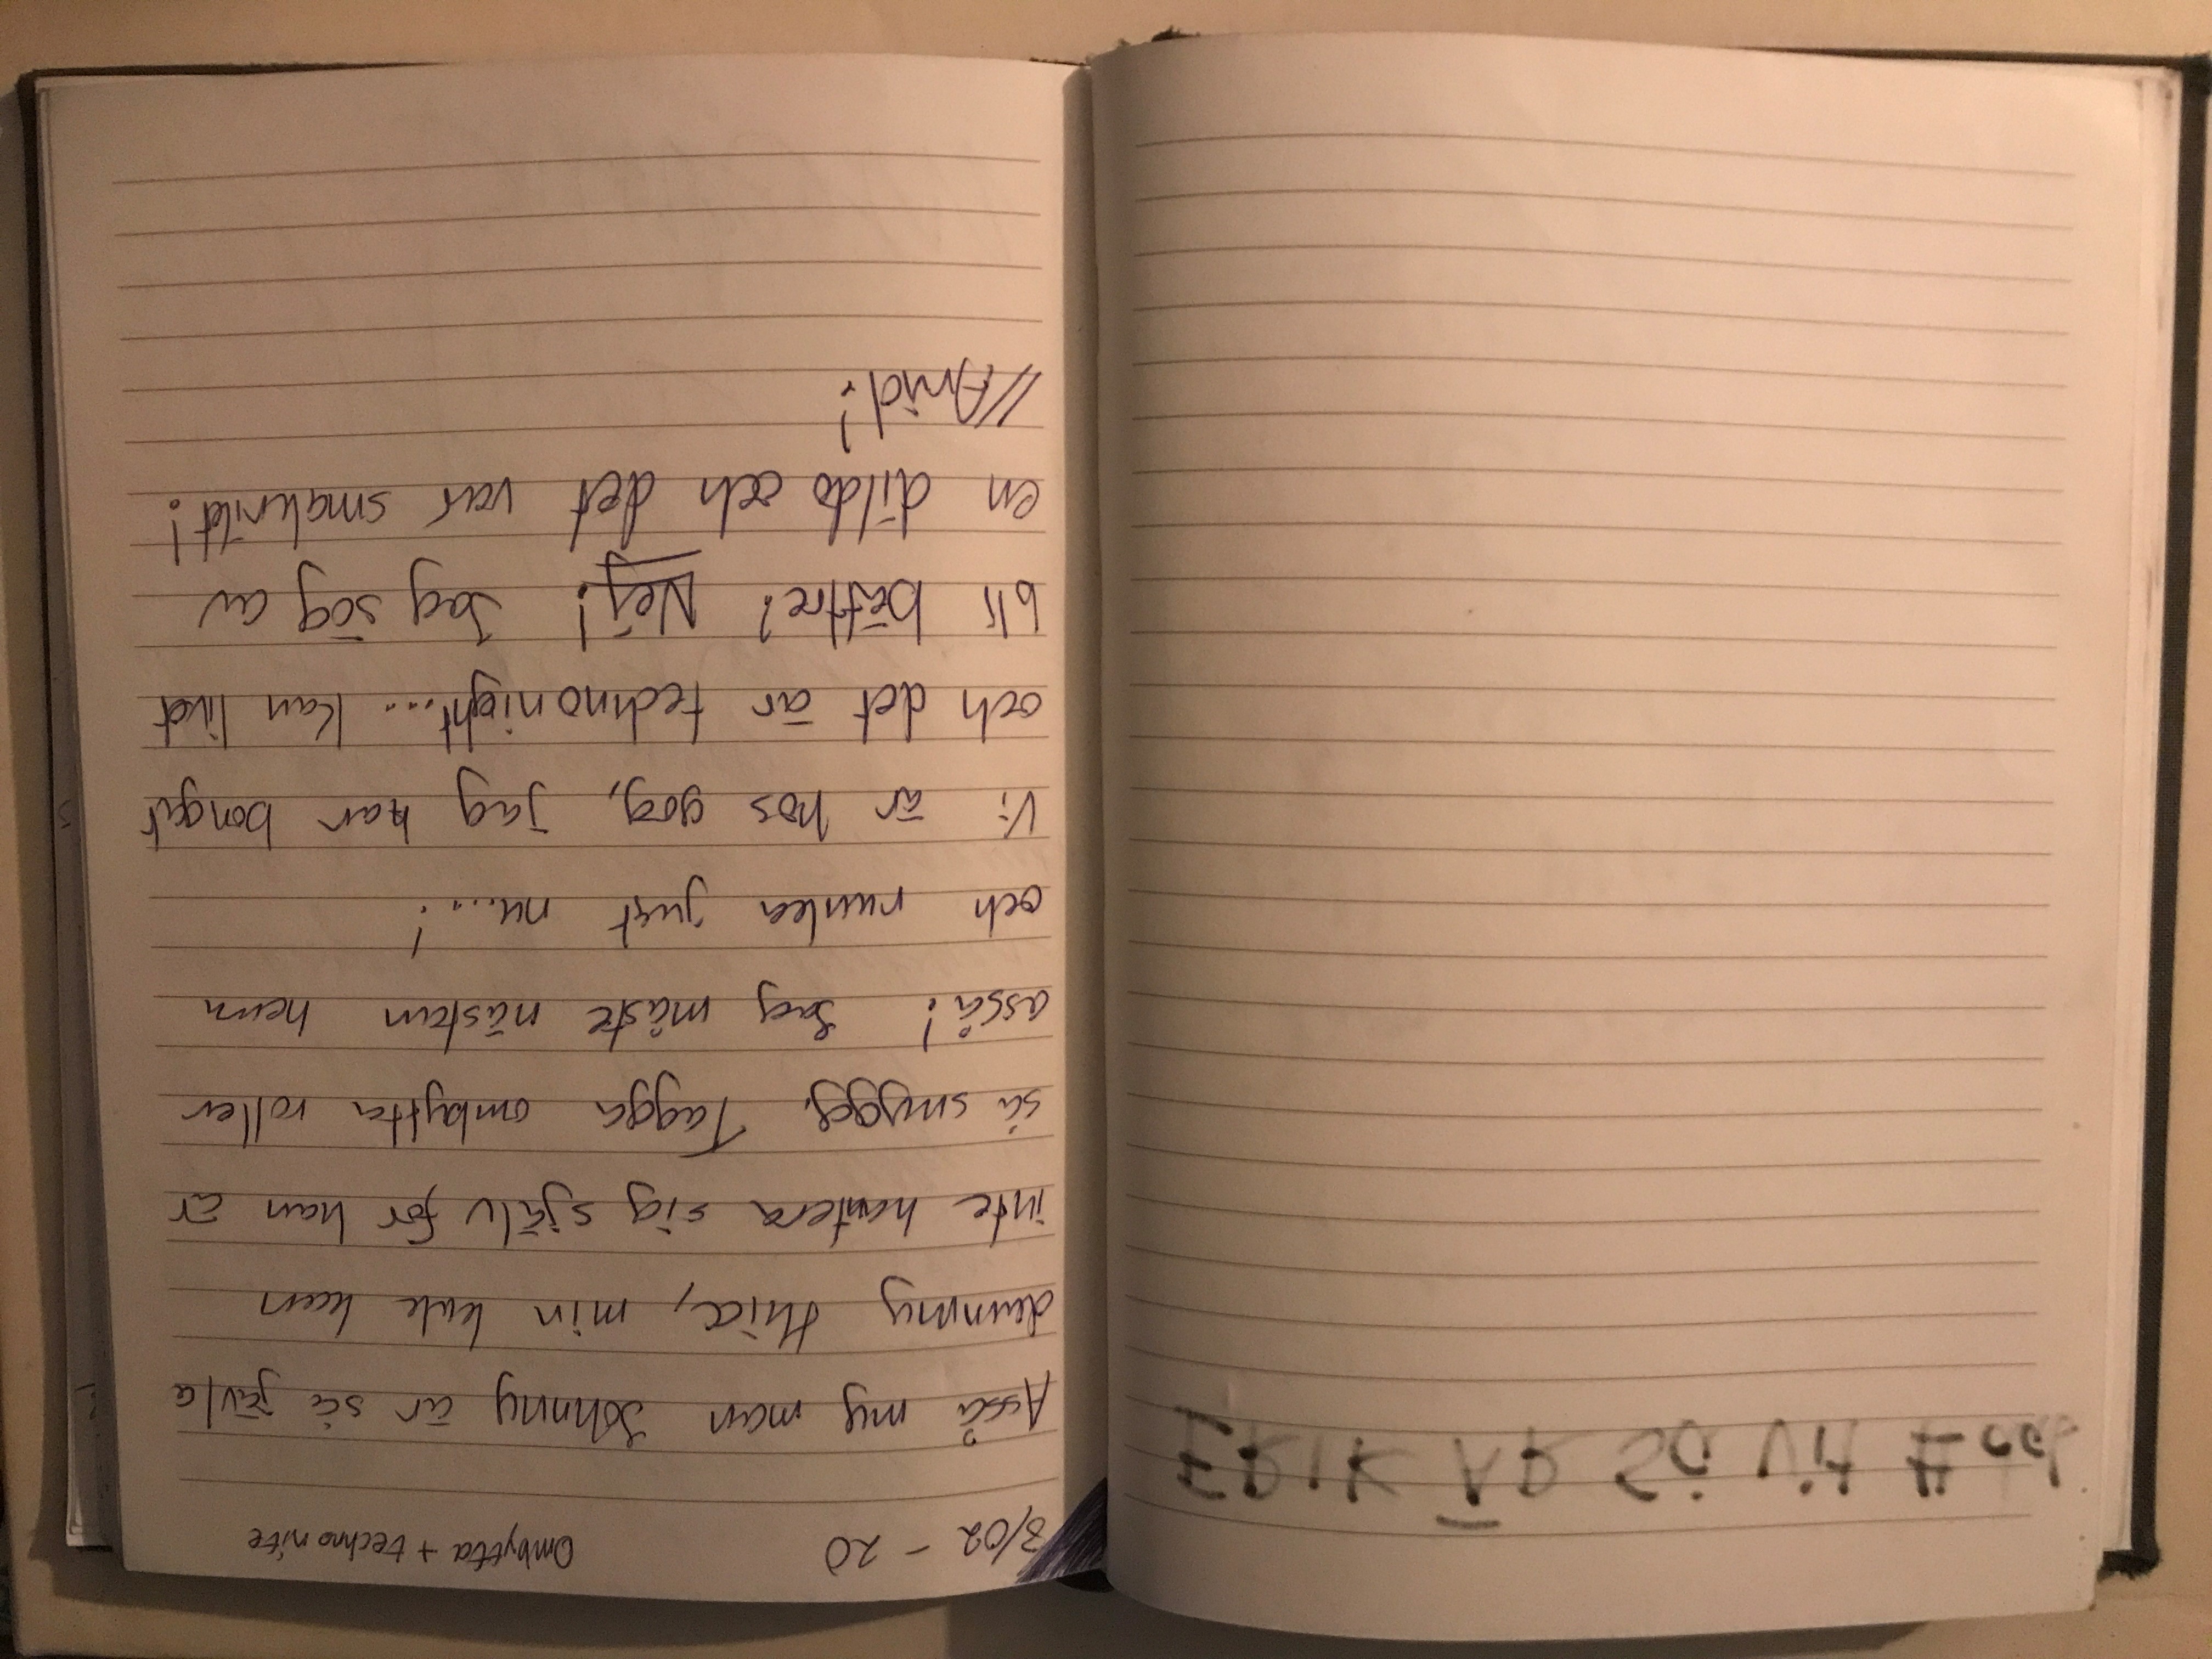 8/02 - 20 Ombytta + techno nite
Asså my man Johnny är så jävla
dummy thicc, min kuk kan
inte hantera sig själv för han är
så snygg. Tagga ombytta roller
asså! Jag måste nästan hem
och runka just nu...!
Vi är hos gog, jag har bongat
och det är technonight... Kan livet
bli bättre? Nej! Jag sög av
en dildo och det var smakrikt!
//Arvid!
ERIK ÄR SÅ Vit